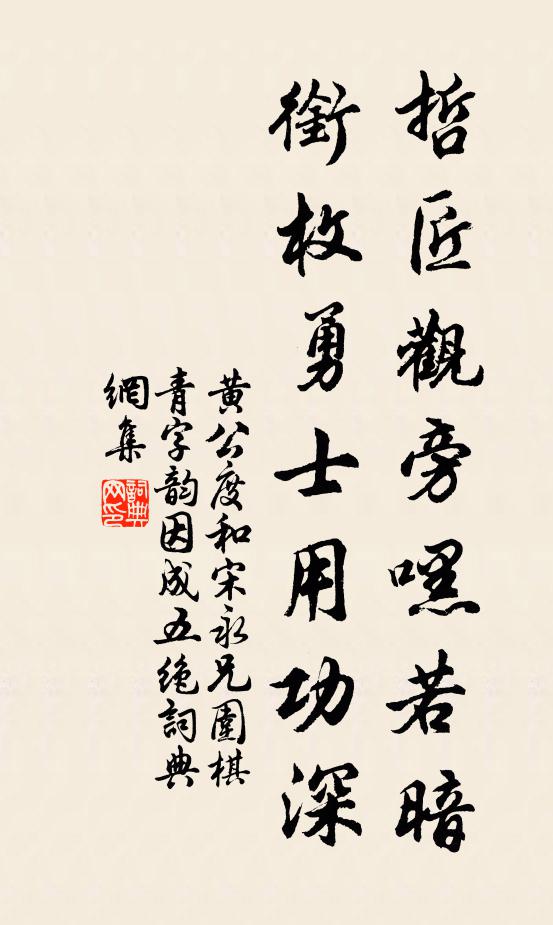 哲匠觀旁嘿若暗
銜枚勇士用功深
黄公度和宋永兄圍棋
青字韵因成五绝詞典
網集
詞典網印